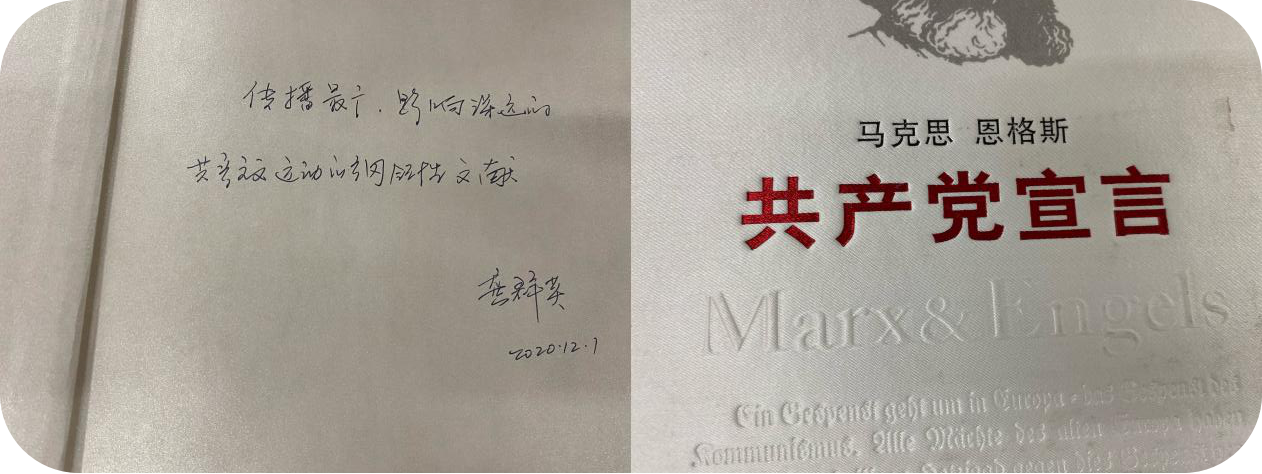 传播最广.影响深远的
共产主义运动的纲领性文献
龚群英
2020.12.1
马克思 恩格斯
共产党宣言
Marx & Engels
Ein Gespenst geht um in Europa - das Gespenst des
Kommunismus. Alle Mächte des alten Europa haben